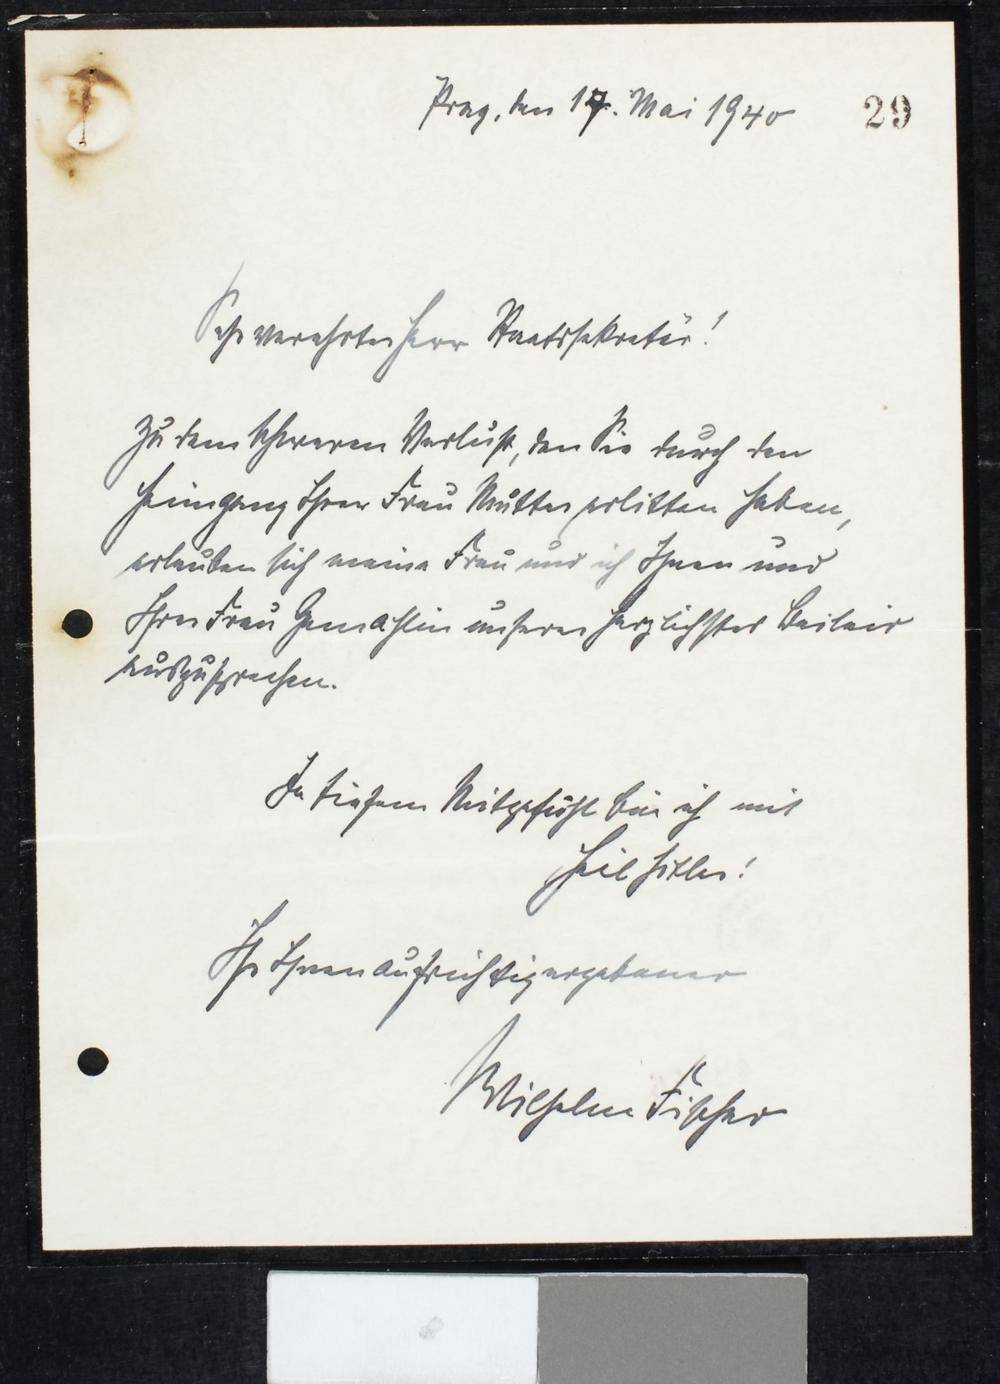 Prag, den 17. Mai 1940
29
Sehr verehrter Herr Staatssekretär!
Zu dem schweren Verlust, den Sie durch den
Heimgang Ihrer Frau Mutter erlitten haben,
erlauben sich meine Frau und ich Ihnen und
Ihrer Frau Gemahlin unser herzlichstes Beileid
auszusprechen.
In tiefem Mitgefühl bin ich mit
Heil Hitler!
Ihr Ihnen aufrichtig ergebener
Wilhelm Fischer